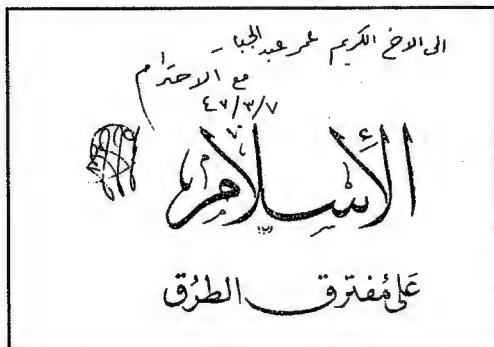 الى الاخ الكريم عمر عبد الجبار
مع الاحترام
٤٧/٣/٧
الإسلام
على مفترق الطرق